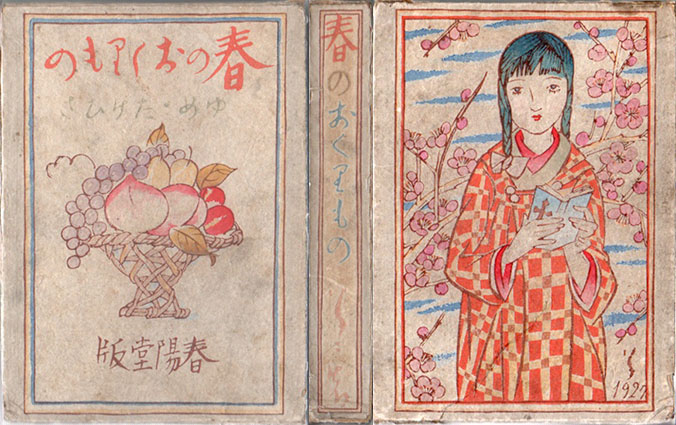 春のおくりもの
ゆめ・たけひさ
春陽堂版
春のおくりもの
1927